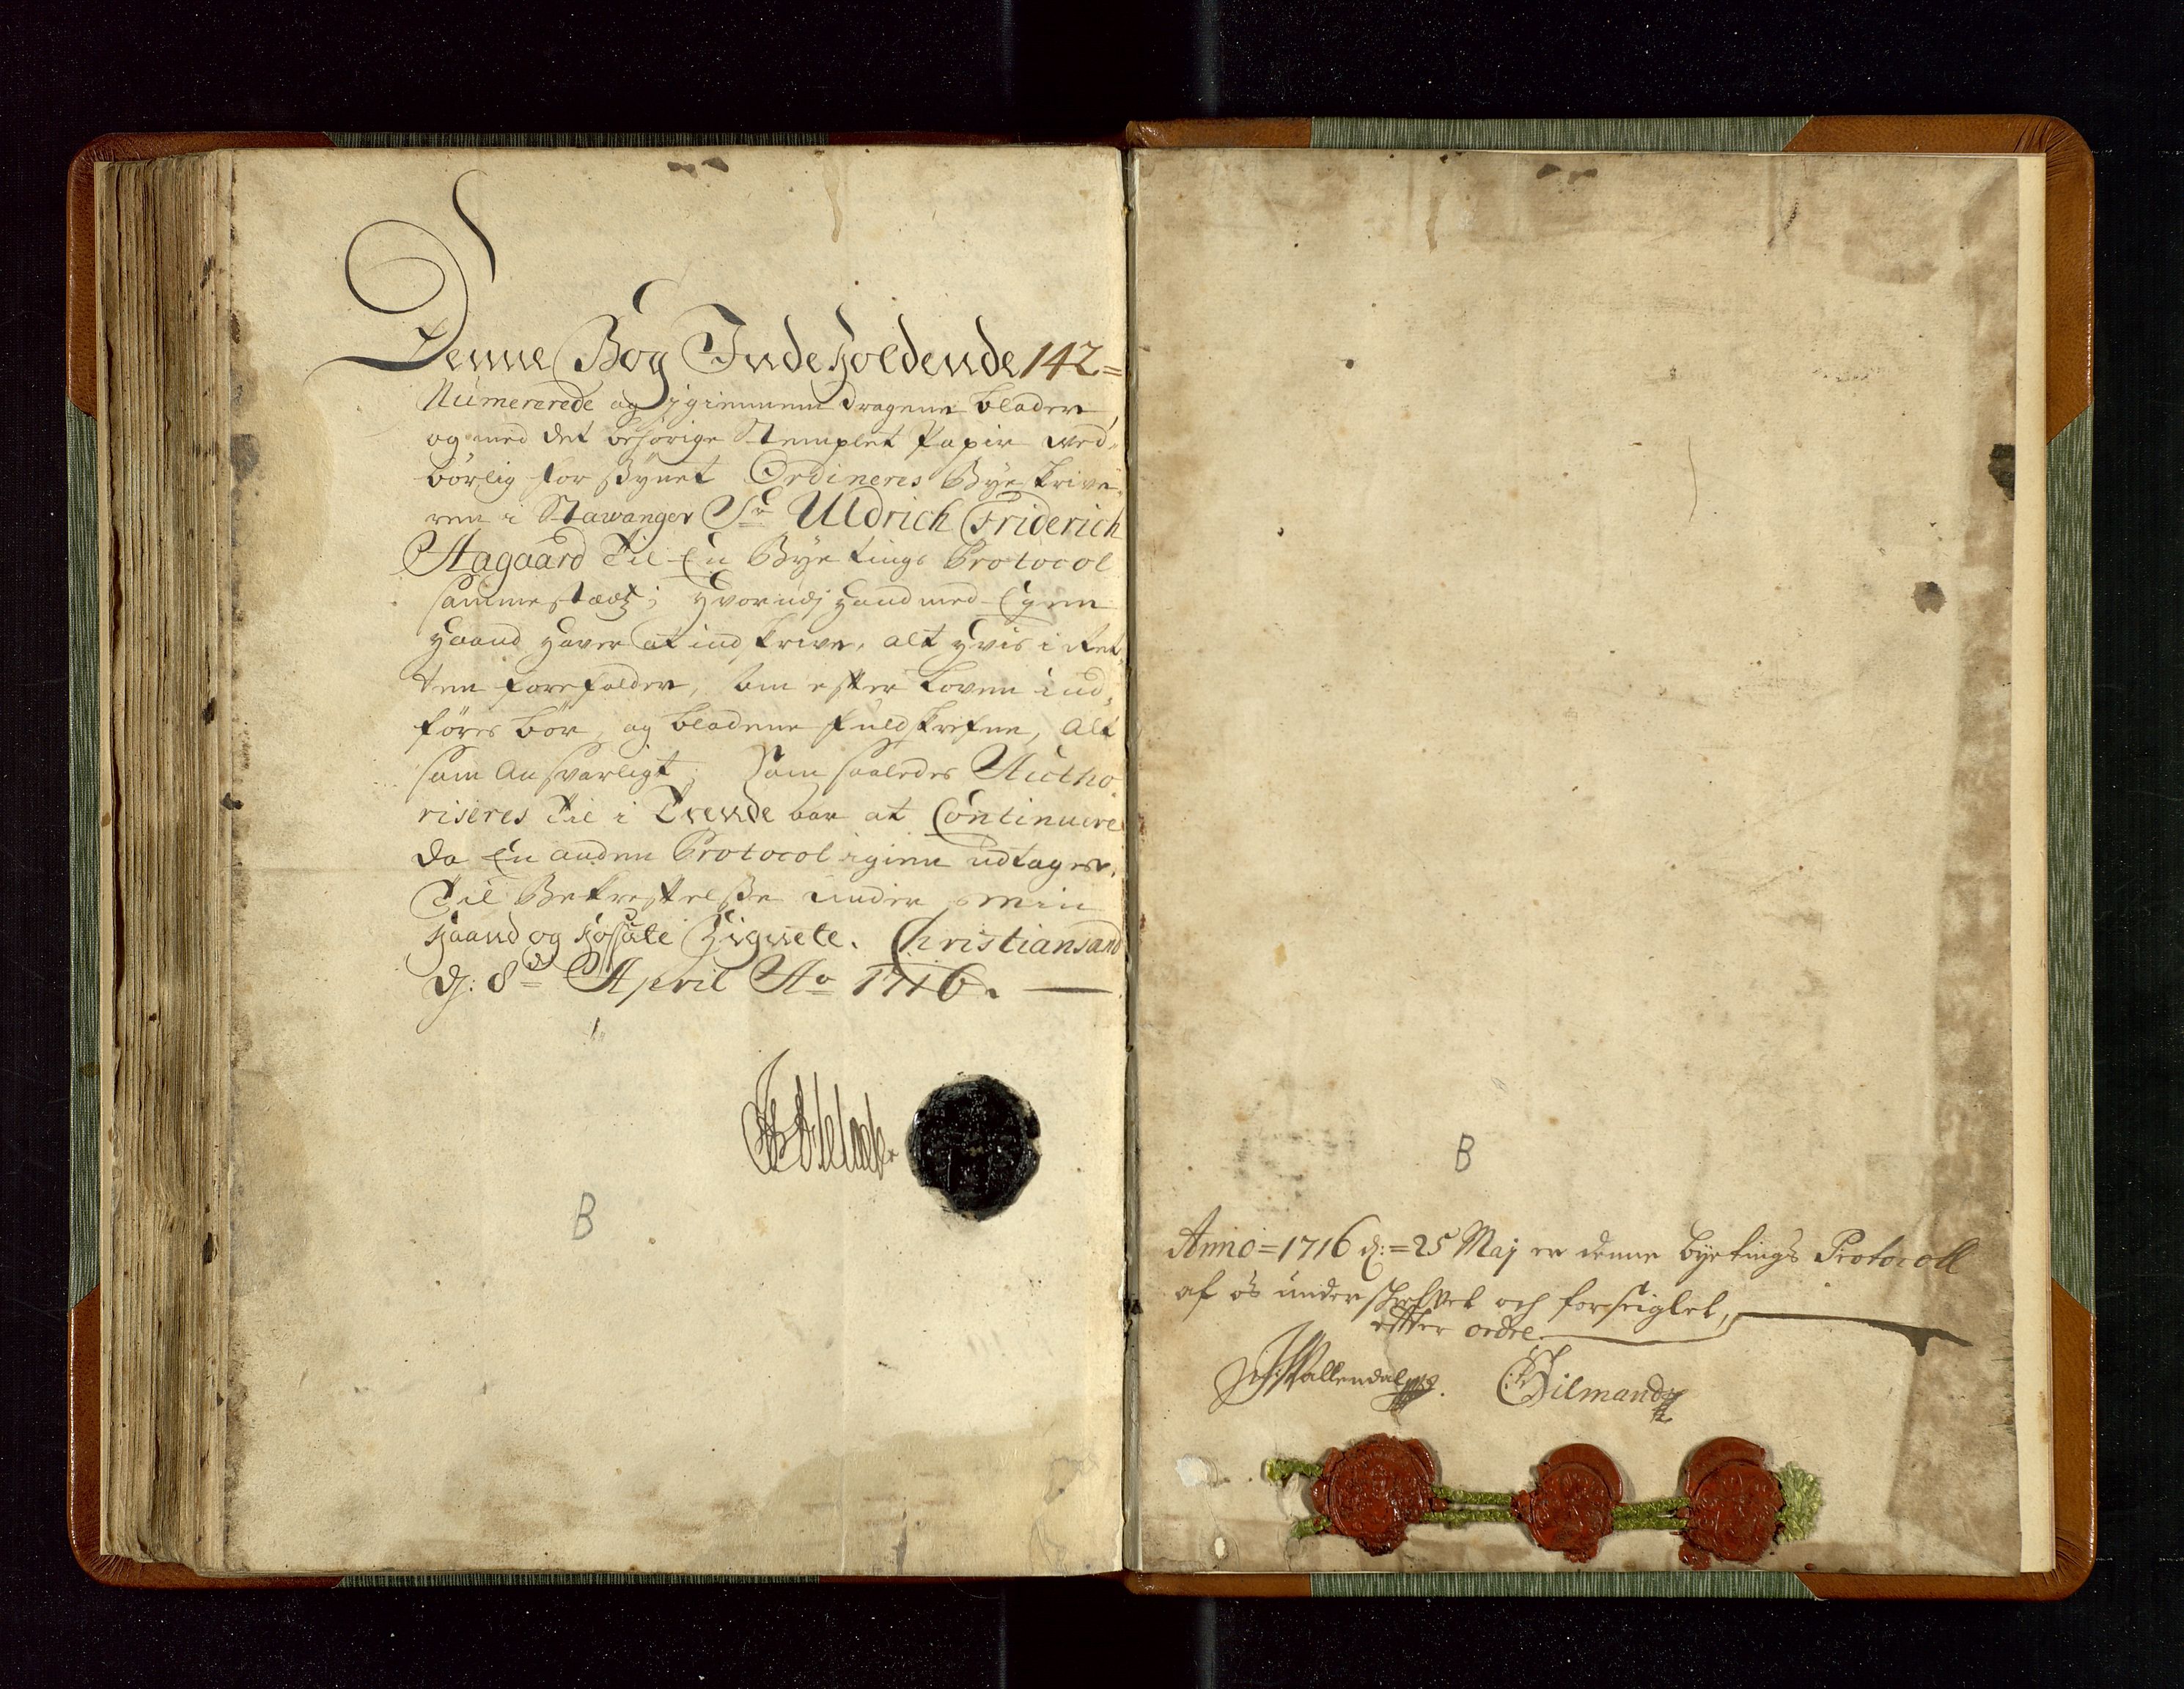 Denne Bog Indeholdende 142=
Numererede og igiennem dragene blader,
og med det behörige Stemplet Papir ved-
börlig forsÿnet Ordineres Bÿeskrive-
ren i Stawanger Sr Uldrich Friderich
Aagaard Til En Bÿe tings Protocol
sammestædtz; Hvorudj Hand med Egen
Haand Haver at indskrive, alt Hvis i Ret-
ten forefalder, som efter Loven ind-
föres bör, og bladene fuldskrefne, Alt
som Ansvarligt; Som saaledes Autho-
riseres Til i Trende aar at Continuere
da En anden Protocol igien udtages.
Til Bekreftelße under min
Haand og hosatte Zignete. Christiansand
dj: 8de April Ao 1716.
B
B
Anno=1716 d:=25 Maj er denne bÿetings Protocoll
af os underskrefvet och forseiglet,
effter ordre.
Wallendal
Tilmand